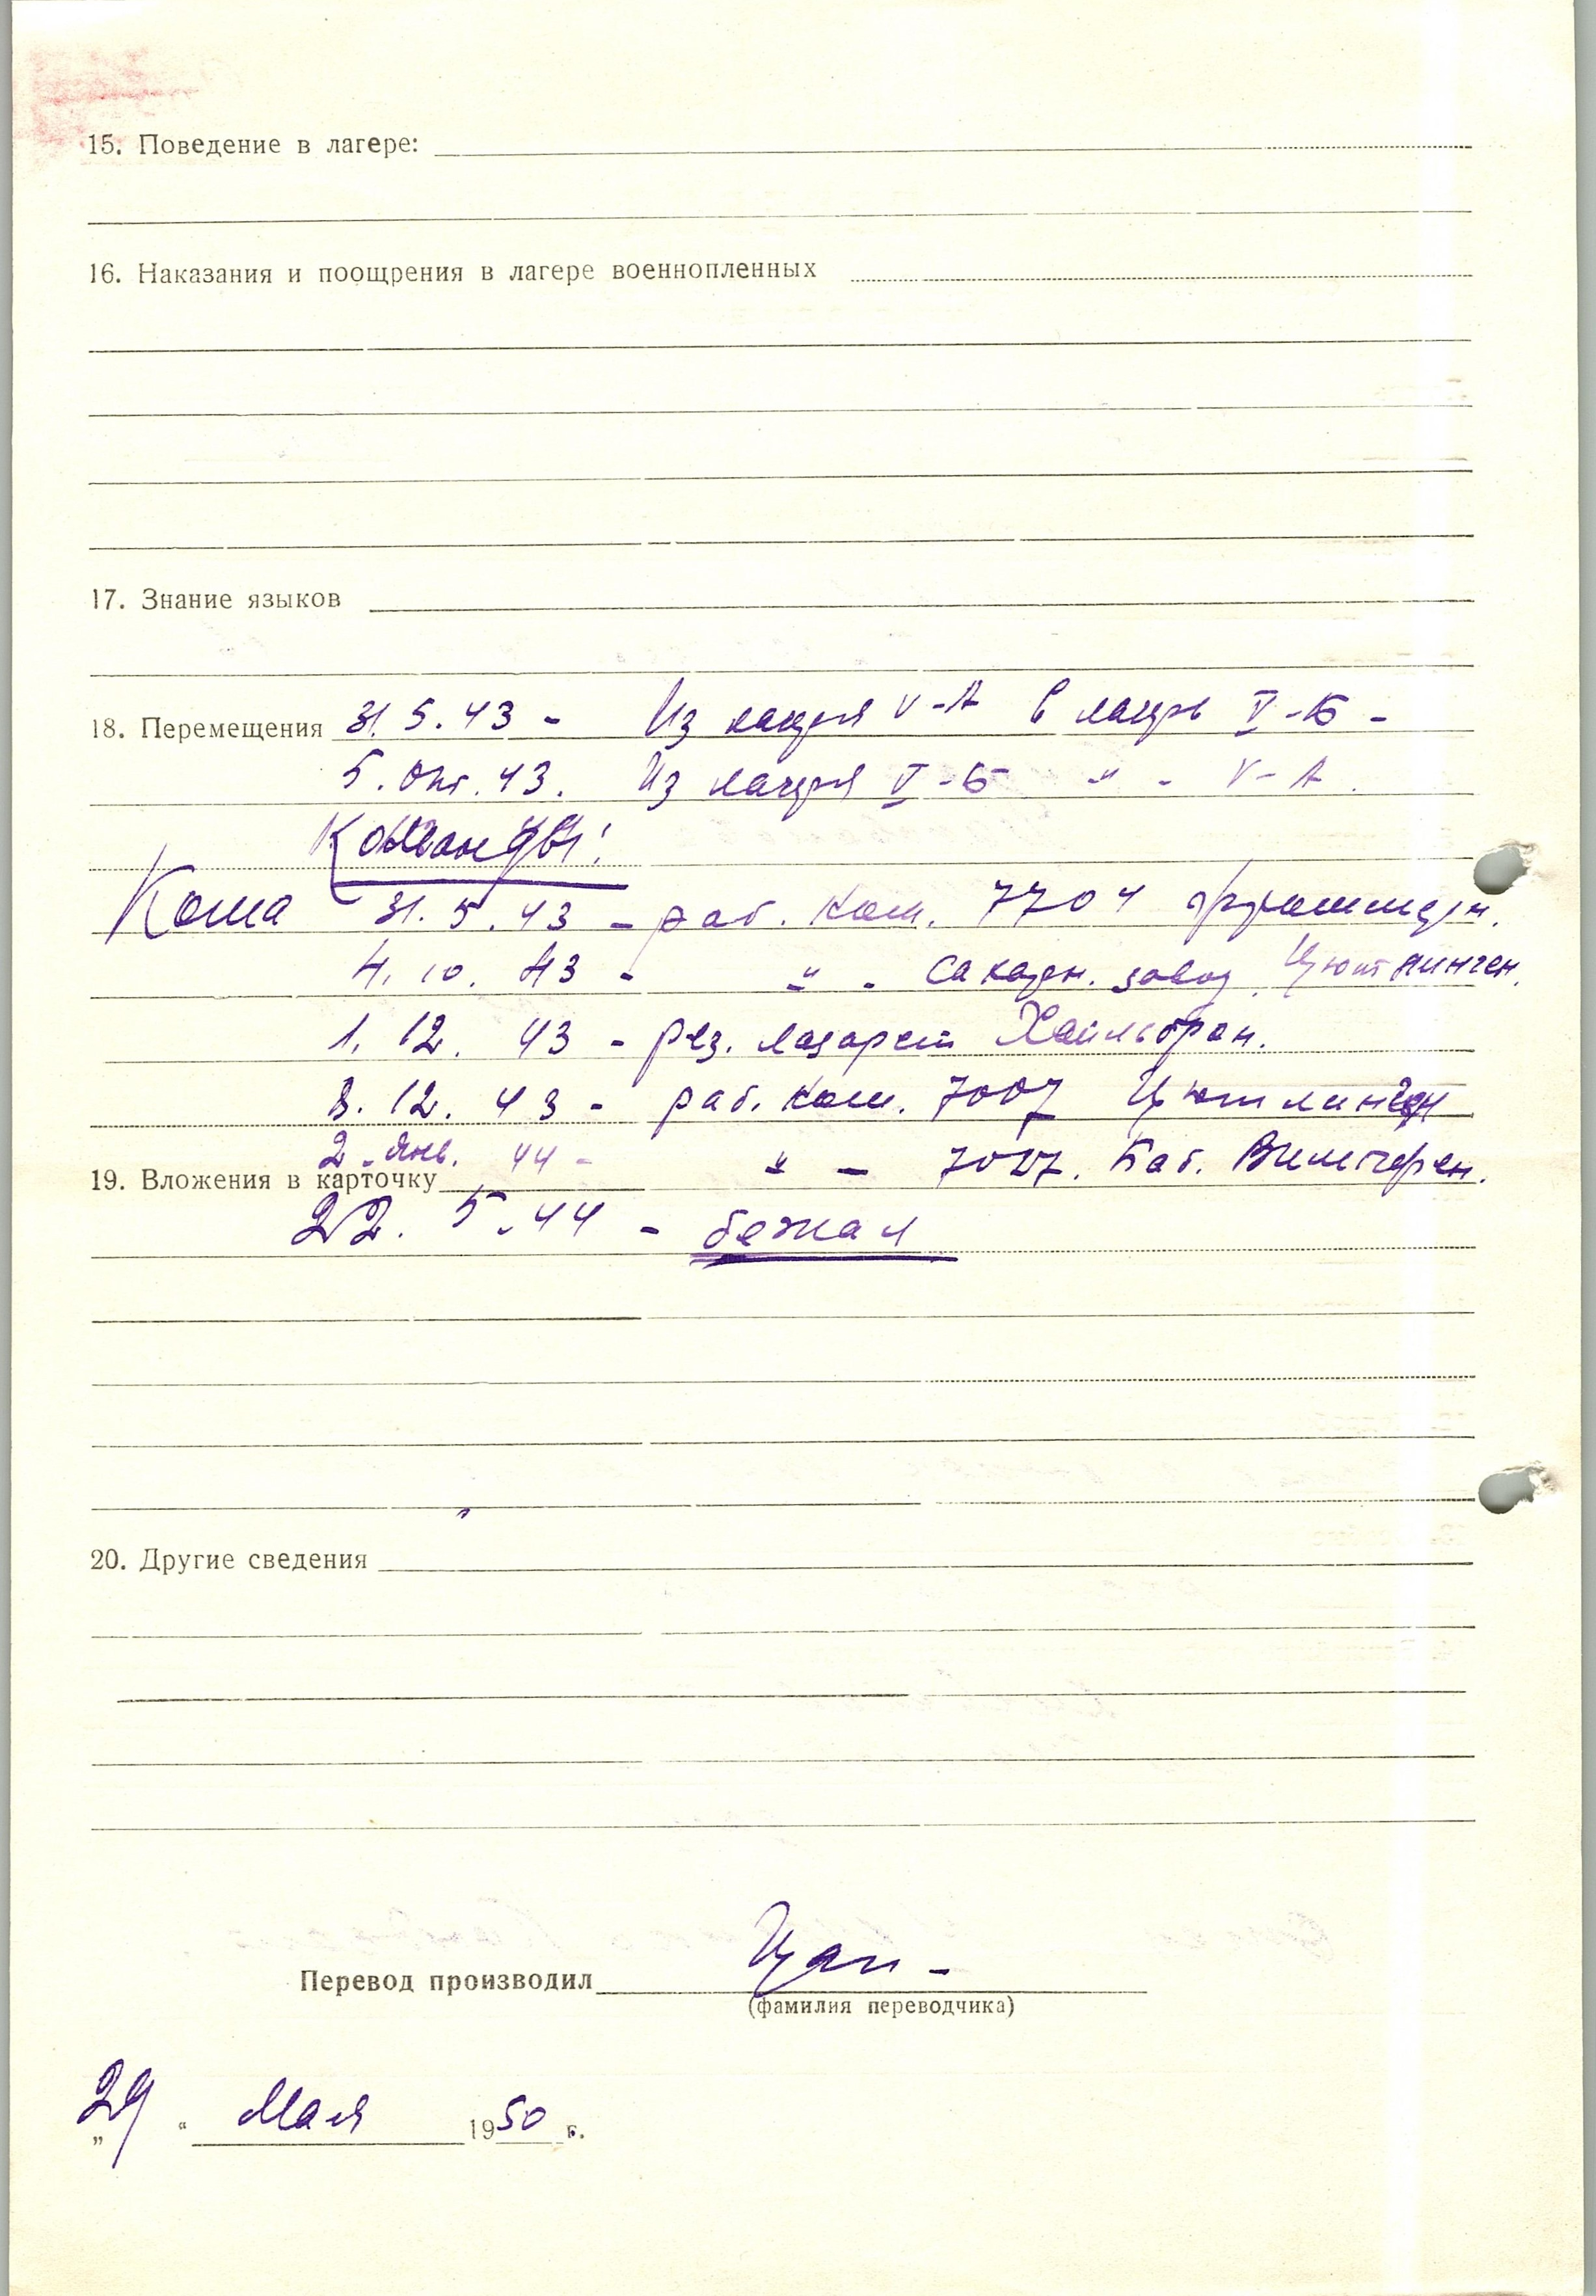 15. Поведение в лагере:
16. Наказания и поощрения в лагере военнопленных
17. Знание языков
18. Перемещения 31.5.43 - Из лагеря V-А в лагерь V-Б -
5. Окт. 43. Из лагеря V-Б " - V-А.
Команды:
Кома 31.5.43 - раб. ком. 7704
4.10.43 - " - завод. Цютлинген.
1.12.43 - рез. лазарет Хайльброн.
8.12.43 - раб. ком. 7007 Цютлинген
2. Янв. 44 - " - 7007.
19. Вложения в карточку
22.5.44 - бежал
20. Другие сведения
Перевод производил Цап -
(фамилия переводчика)
„29“ Мая 1950 г.